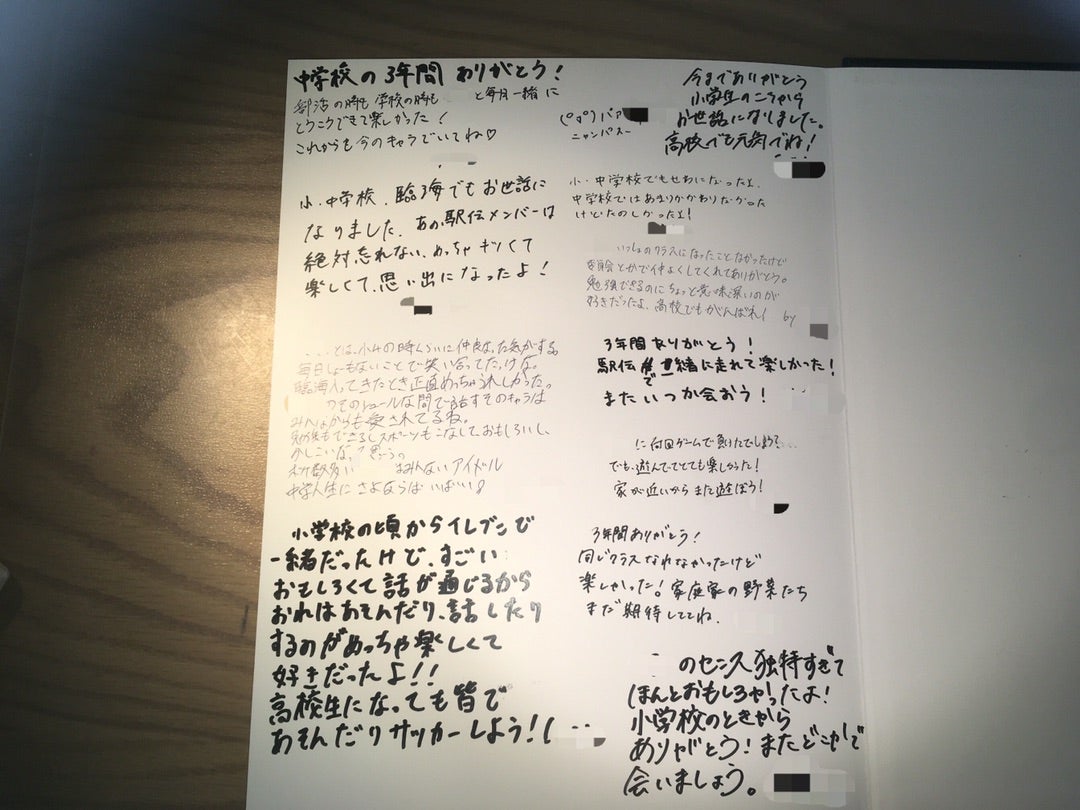 中学校の3年間 ありがとう!
部活の時も学校の時も と毎月一緒に
とうこうできて楽しかった!
これからも今のキャラでいてね♡
小・中学校、臨海でもお世話に
なりました、あの駅伝メンバーは
絶対忘れない、めっちゃキツくて
楽しくて、思い出になったよ!
とは、小4の時くらいに仲良くなった気がする。
毎日しょーもないことで笑い合ってたっけな。
臨海入ってきたとき正直めっちゃうれしかった。
のそのシュールな間で話すそのキャラは
みんなからも愛されてるね。
勉強もできるしスポーツもこなしておもしろいし、
かしこいな。
みんないアイドル
中学人生にさよならばいばい
小学校の頃からイレブンで
一緒だったけど、すごい
おもしろくて話が通じるから
おれはあそんだり、話したり
するのがめっちゃ楽しくて
好きだったよ!!
高校生になっても皆で
あそんだりサッカーしよう!!
ニャンパスー
今までありがとう
小学生のころから
お世話になりました。
高校でも元気でね!
小・中学校でもせわになったよ、
中学校ではあまりかかわりなかった
けどたのしかったよ!
いっしょのクラスになったことなかったけど
委員会とかで仲よくしてくれてありがとう。
勉強できるのにちょっと意味深いのが
好きだったよ、高校でもがんばれ! by
3年間ありがとう!
駅伝で一緒に走れて楽しかった!
またいつか会おう!
に何回ゲームで負けたでしょう?
でも、遊んでてとても楽しかった!
家が近いからまた遊ぼう!
3年間ありがとう!
同じクラスなれなかったけど
楽しかった!家庭家の野菜たち
まだ期待しててね、
のセンス独特すぎて
ほんとおもしろかったよ!
小学校のときから
ありがとう!またどこかで
会いましょう。